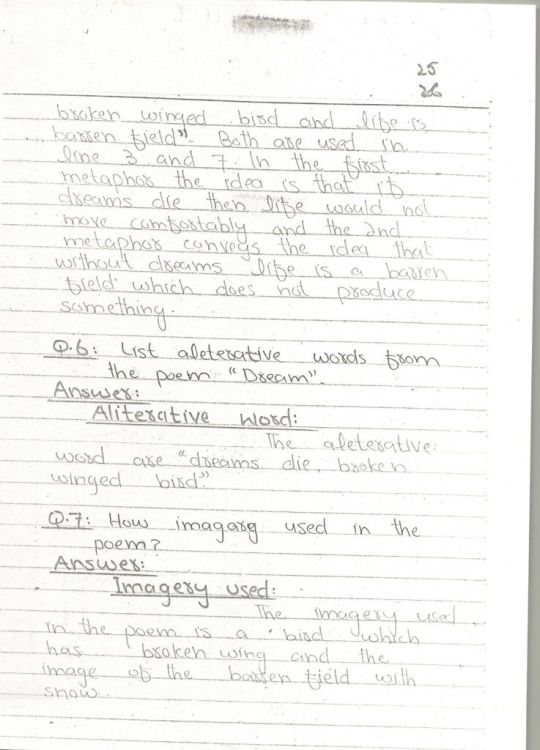 25
26
broken winged bird and life is
barren field". Both are used in
line 3 and 7. In the first
metaphor the idea is that if
dreams die then life would not
move comfortably and the 2nd
metaphor conveys the idea that
without dreams life is a barren
field which does not produce
something.
Q.6: List aleterative words from
the poem "Dream".
Answer:
Aliterative word:
The aleterative
word are "dreams die, broken
winged bird"
Q.7: How imagarg used in the
poem?
Answer:
Imagery used:
The imagery used
in the poem is a bird which
has broken wing and the
image of the barren field with
snow.